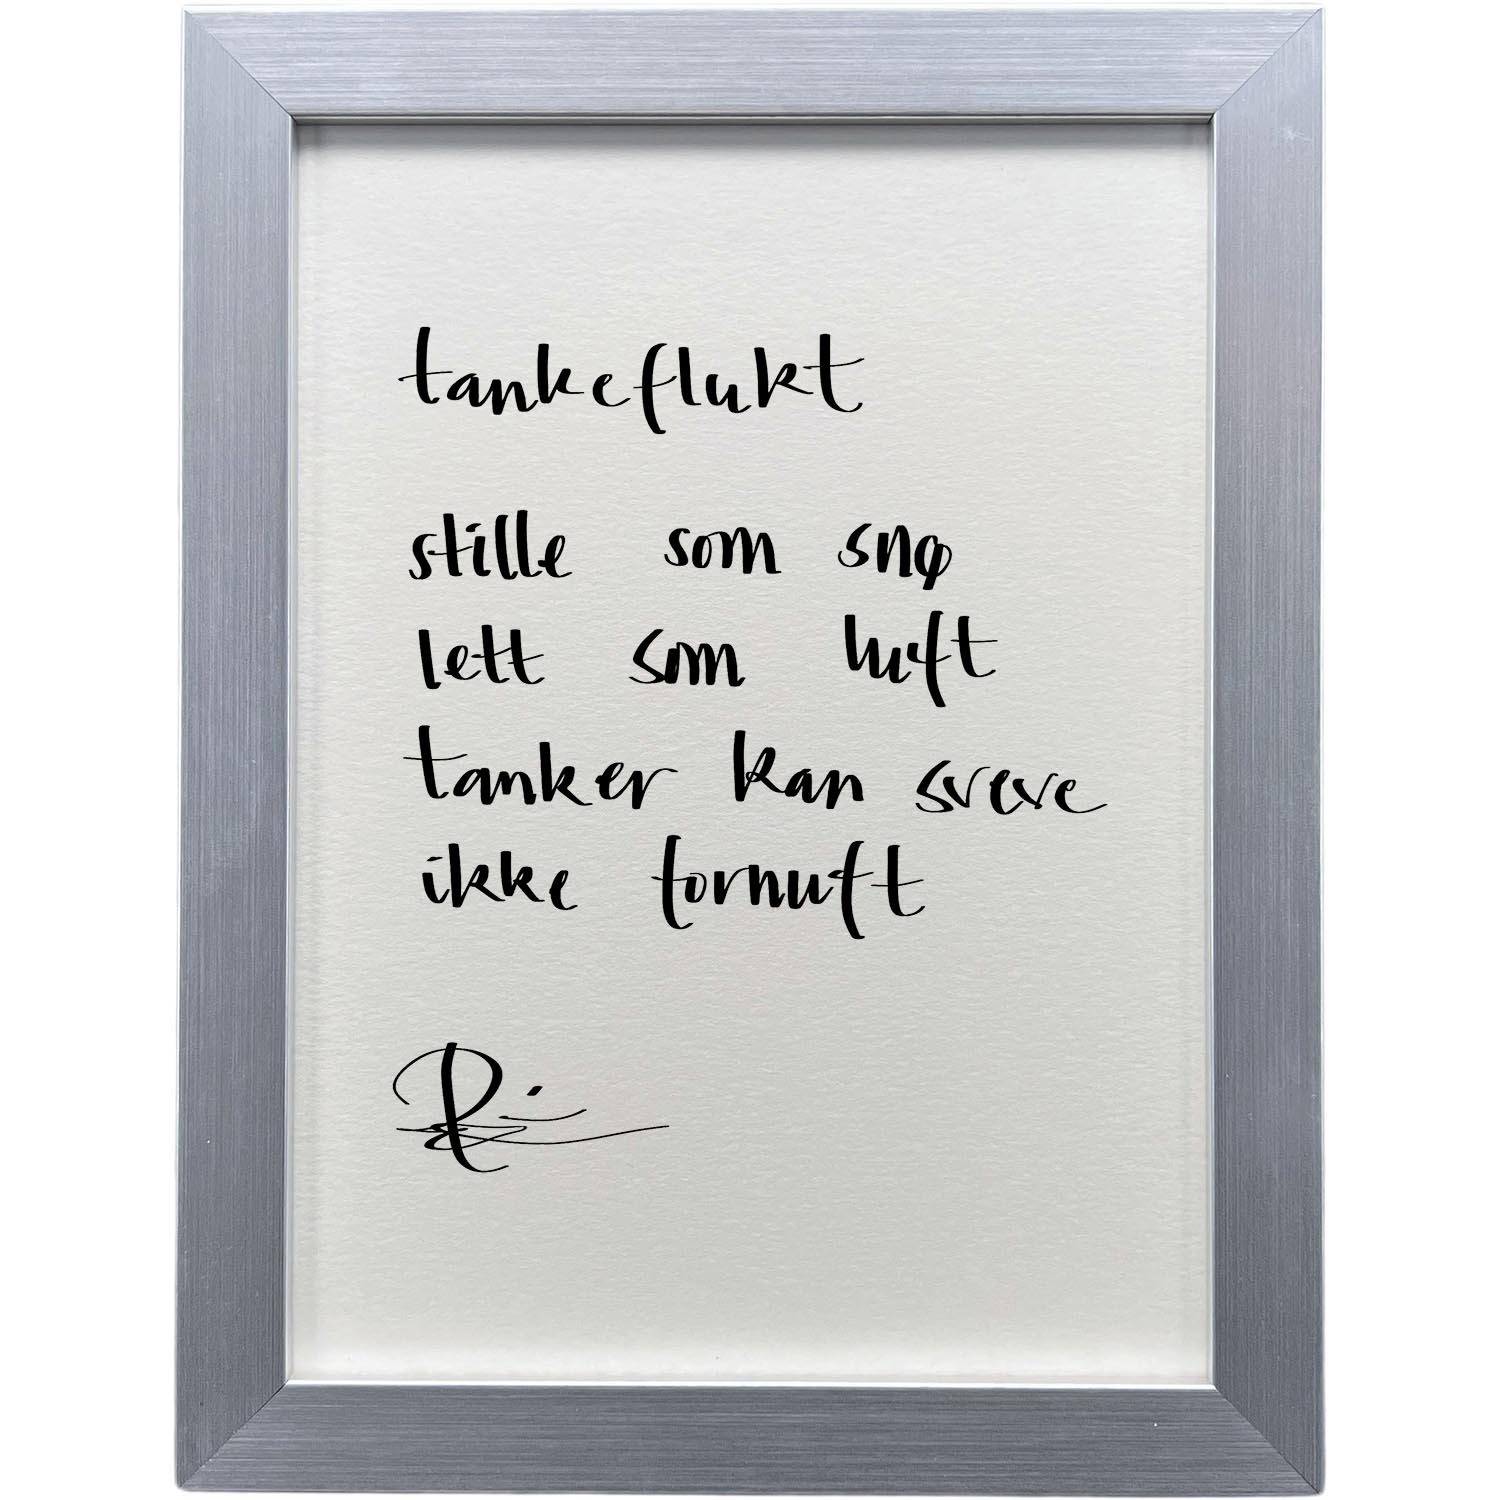 tankeflukt
stille som snø
lett som luft
tanker kan sveve
ikke fornuft